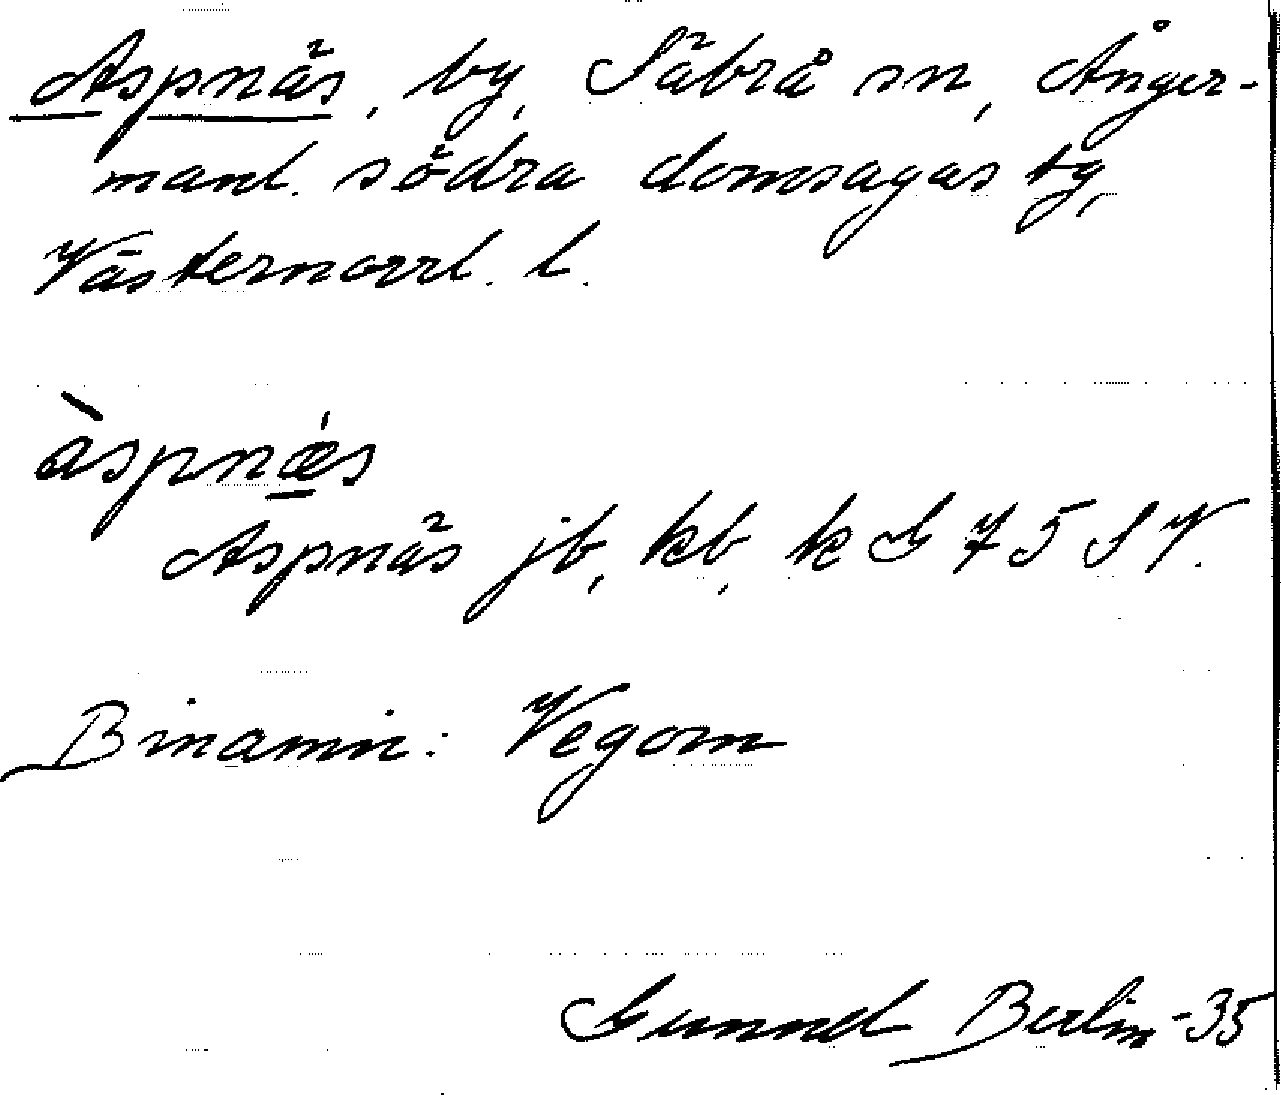 Aspnäs, by, Säbrå sn, Ånger-
manl. södra domsagas tg,
Västernorrl. l.
àspnǽs
Aspnäs jb, kb, k G 75 SV.
Binamn: Vegom
Gunnel Berlin -35